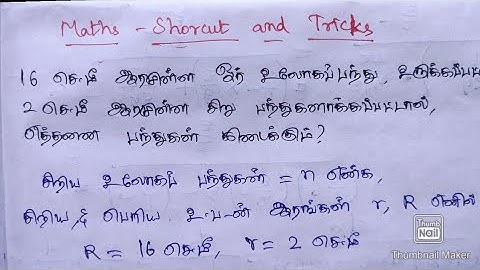 Maths - Shorcut and Tricks
16 செ.மீ ஆரமுள்ள ஓர் உலோகப்பந்து, உருக்கப்பட்டு
2 செ.மீ ஆரமுள்ள சிறு பந்துகளாக்கப்பட்டால்,
எத்தனை பந்துகள் கிடைக்கும்?
சிறிய உலோகப் பந்துகள் = n என்க,
சிறிய, பெரிய உ.ப-ன் ஆரங்கள் r, R எனில்
R = 16 செ.மீ, r = 2 செ.மீ
Thumb
Nail
Thumbnail Maker